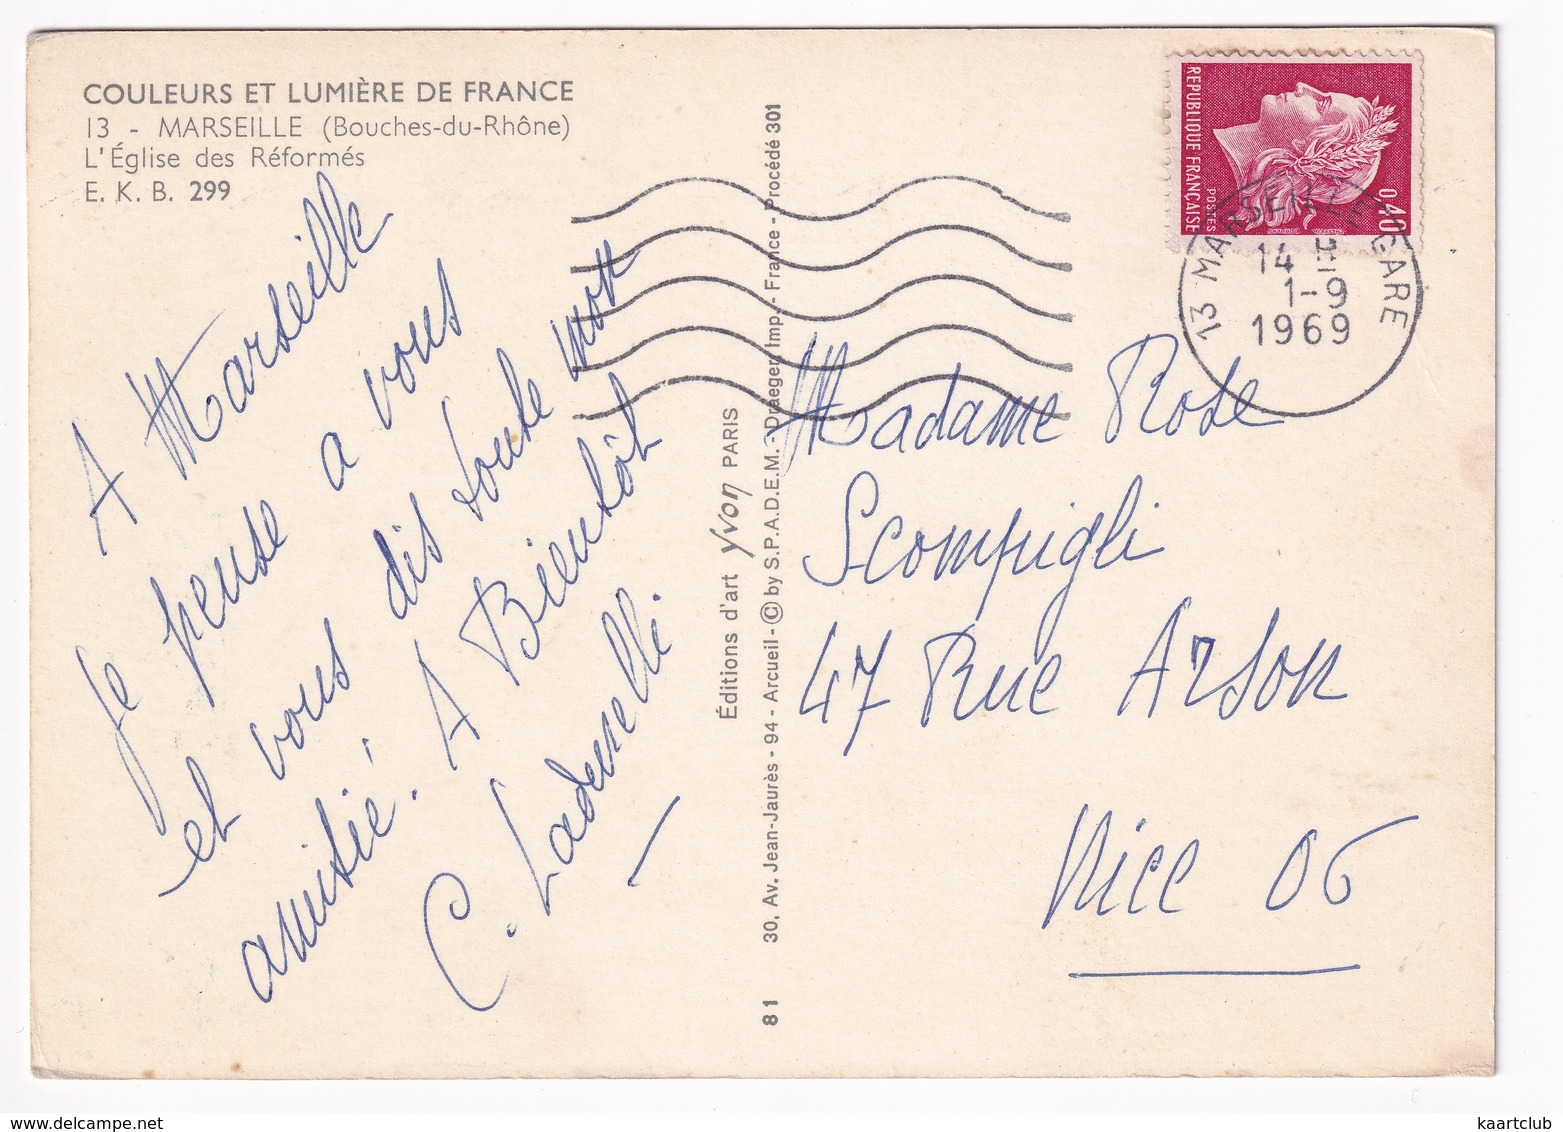 COULEURS ET LUMIÈRE DE FRANCE
13 - MARSEILLE (Bouches-du-Rhône)
L'Église des Réformés
E. K. B. 299
A Marseille
Je pense a vous
et vous dis toute mon
amitié. A Bientôt
C. Ladmelli
Éditions d'art Yvon PARIS
30, Av. Jean-Jaurès - 94 - Arcueil - © by S.P.A.D.E.M. - Draeger, Imp. - France - Procédé 301
81
REPUBLIQUE FRANÇAISE
POSTES
0,40
13 MARSEILLE GARE
14 H
1-9
1969
Madame Rose
Scompigli
47 Rue Arson
Nice 06
kaartclub